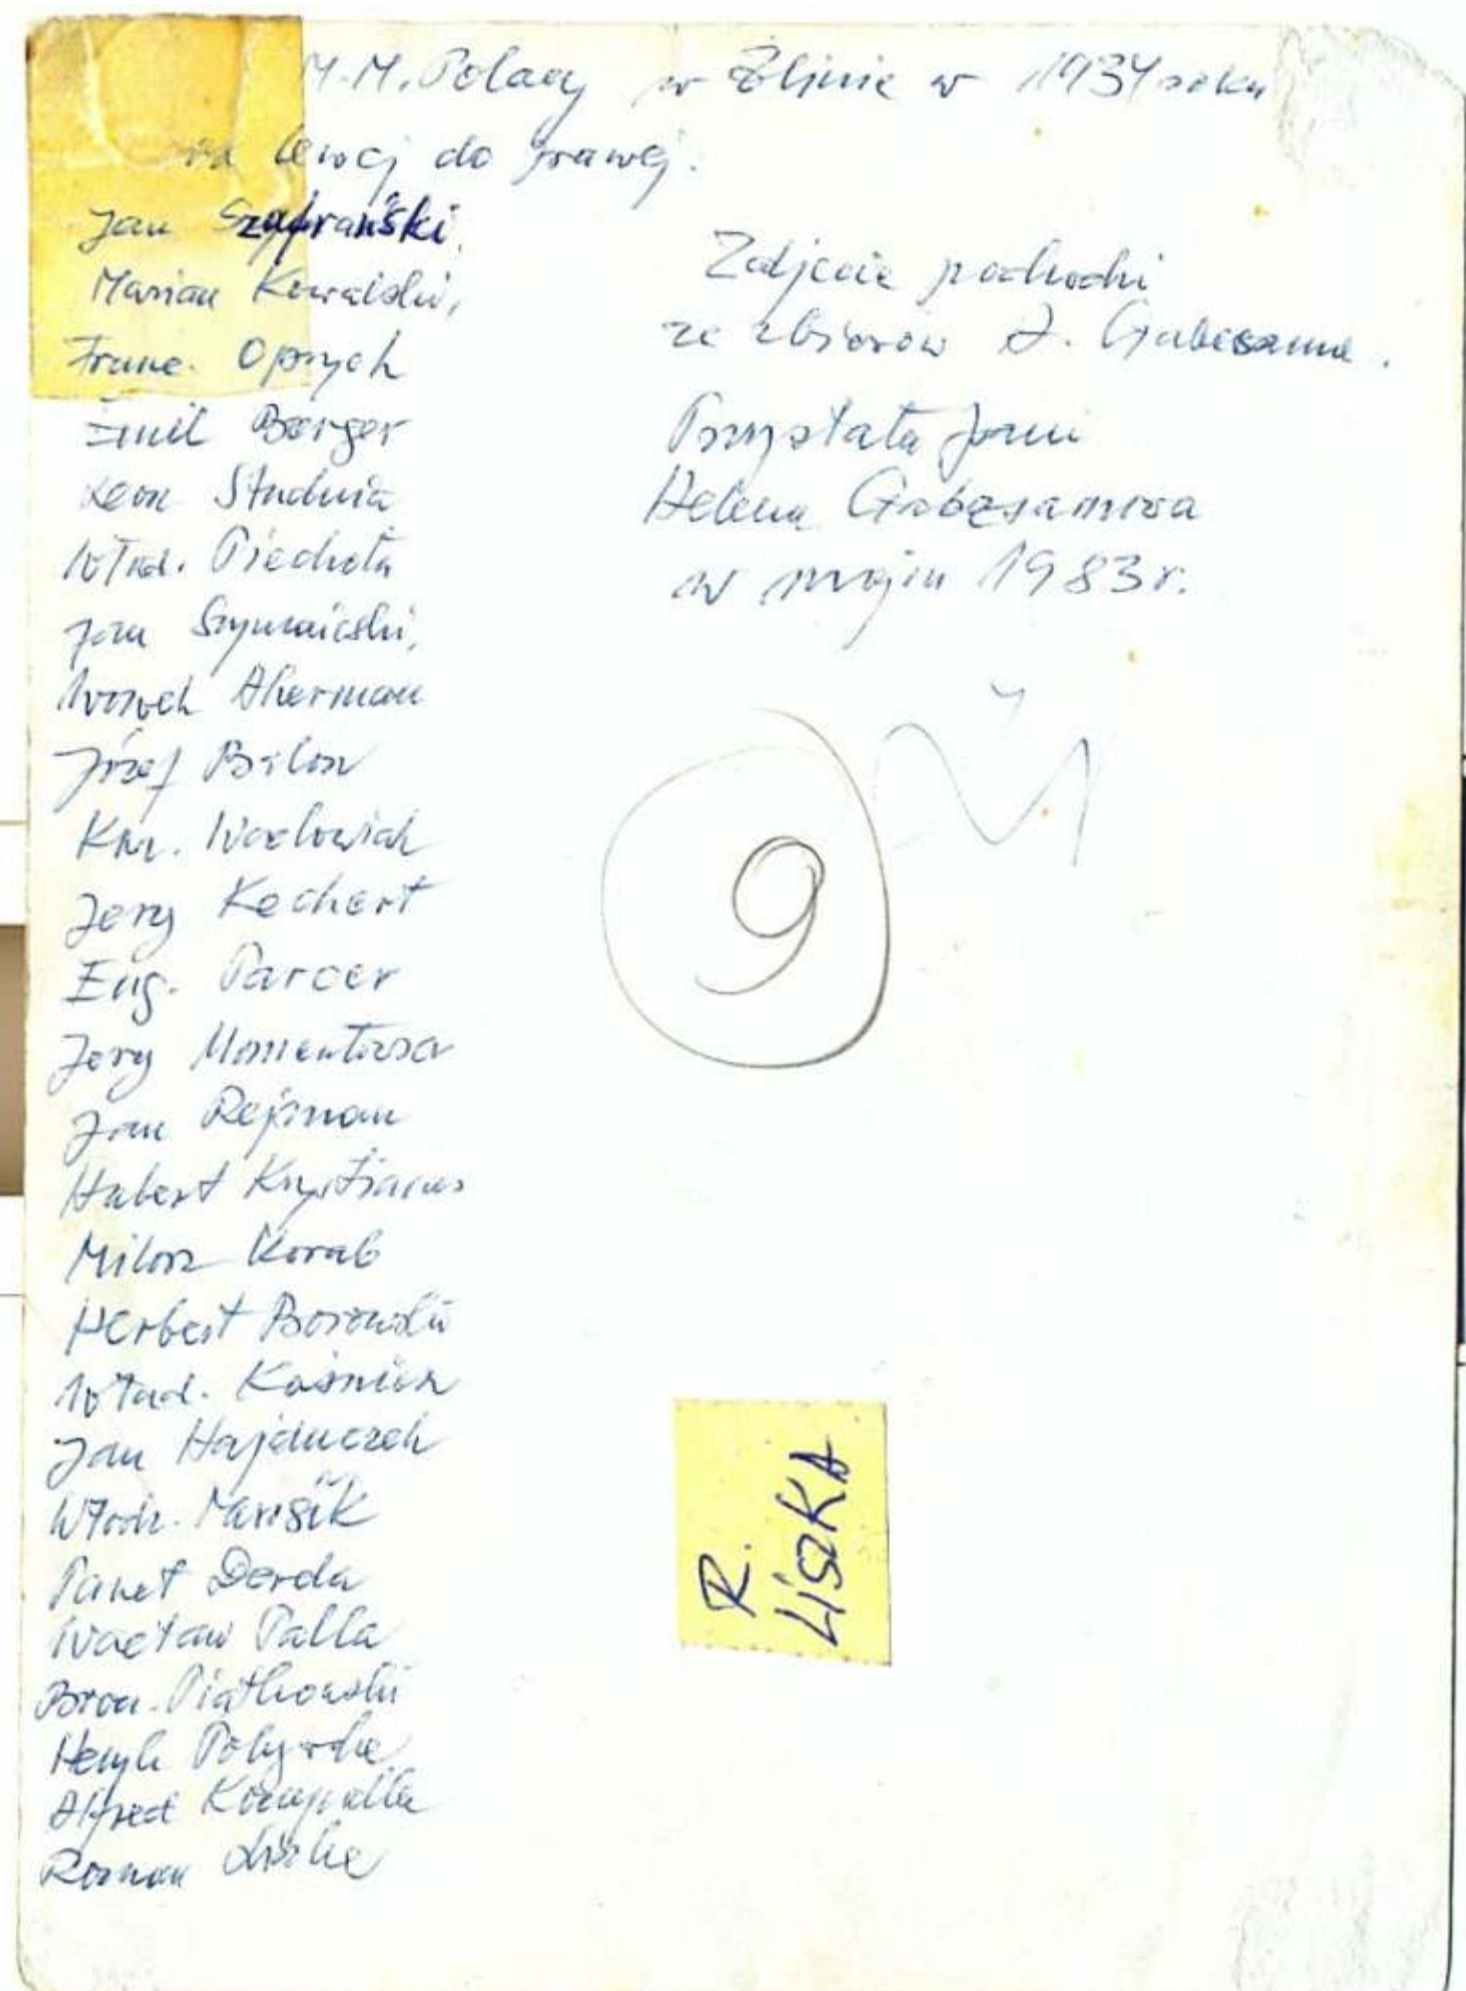 M.M. Polacy w Zlinie w 1934 roku
od lewej do prawej.
Jan Szafrański,
Marian Kowalski,
Franc. Oprych
Emil Berger
Leon Studnia
Wład. Piechota
Jan Szymański,
Akerman
Józef Bilon
Kaz. Wacławiak
Jerzy Kechert
Eug. Parcer
Jerzy
Jan Rejman
Hubert Krystianus
Milosz Korab
Herbert Borowski
Wład. Kaśmierz
Jan Hajduczek
Włodz. Marišik
Paweł Derda
Wacław Palla
Bron. Piątkowski
Henryk
Alfred
Roman Liszka
Zdjęcie pochodzi
ze zbiorów J.
Przysłała pani
Helena
w maju 1983 r.
9
R.
LISZKA